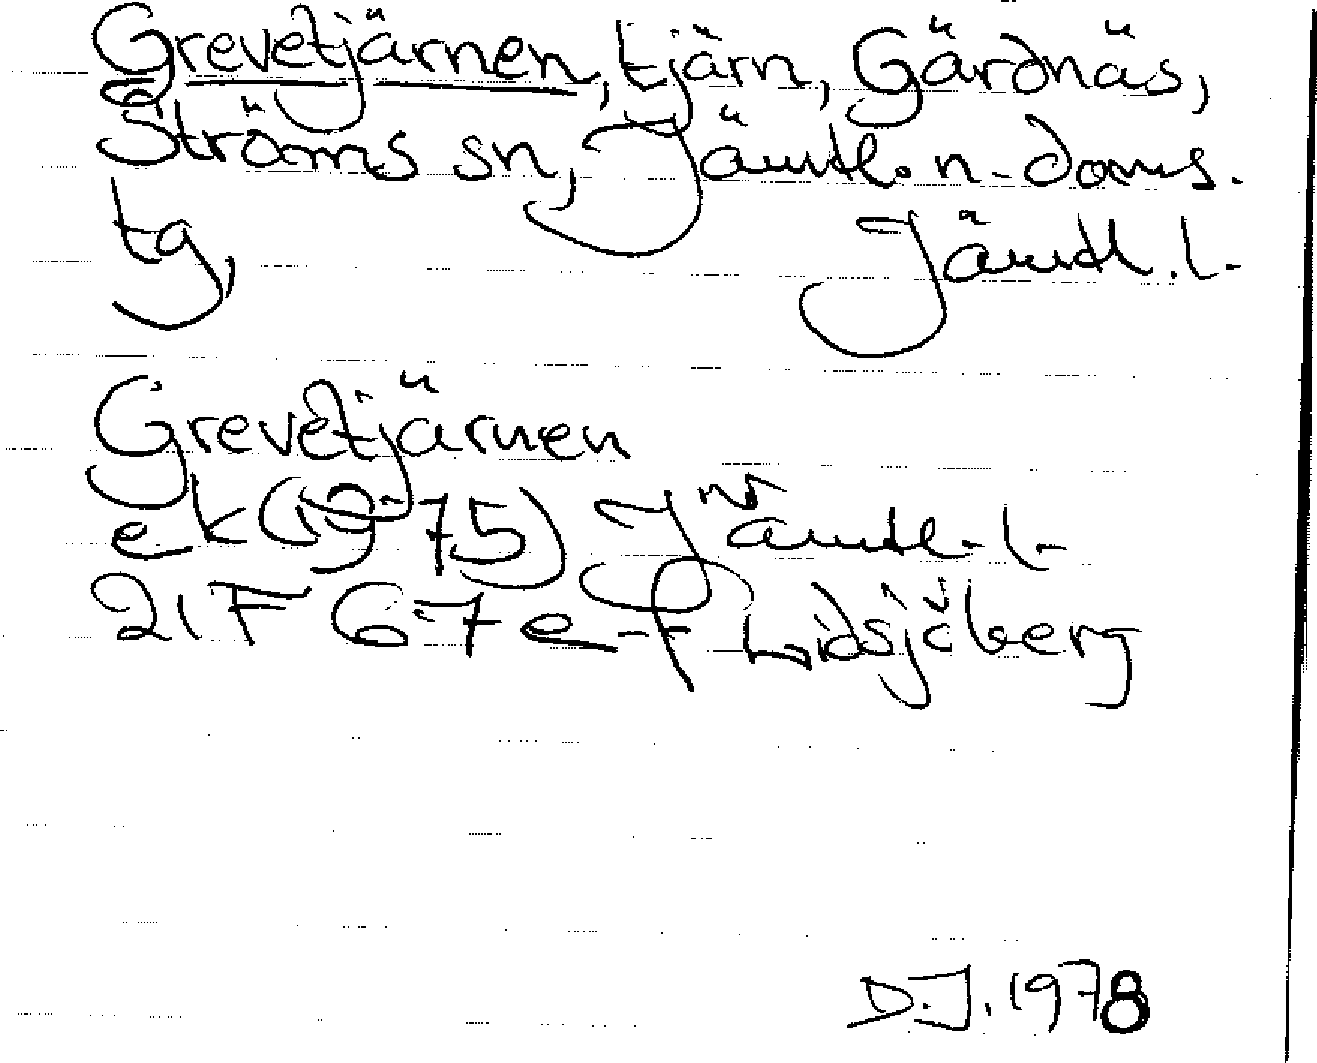 Grevetjärnen, tjärn, Gärdnäs,
Ströms sn, Jämtl. n. doms.
tg,
Jämtl. l.
Grevetjärnen
ek (1975) Jämtl. l.
21F 67 e-f Lidsjöberg
D.J. 1978